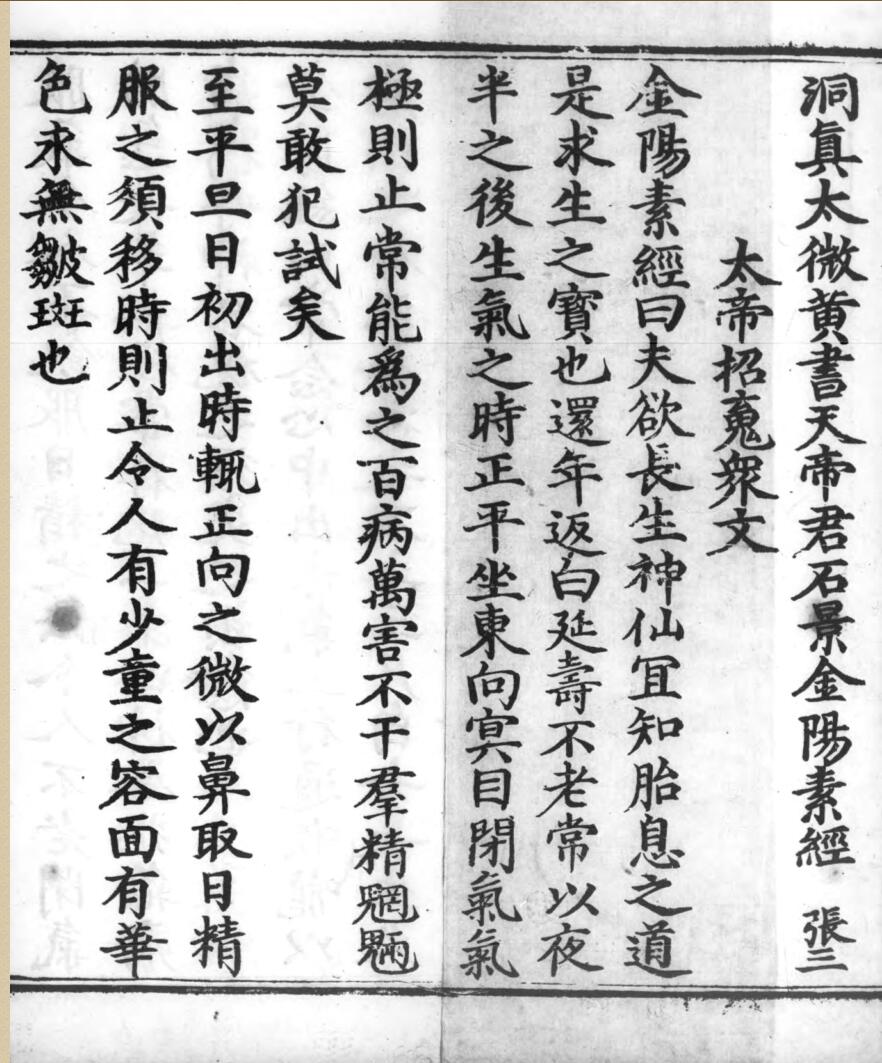 洞真太微黄書天帝君石景金陽素經　張三
太帝招䰟衆文
金陽素經曰夫欲長生神仙冝知胎息之道
是求生之寶也還年返白延壽不老常以夜
半之後生氣之時正平坐東向㝠目閉氣氣
極則止常能爲之百病萬害不干羣精魍魎
莫敢犯試矣
至平旦日初出時輙正向之微以鼻取日精
服之湏移時則止令人有少童之容面有華
色永無皺斑也